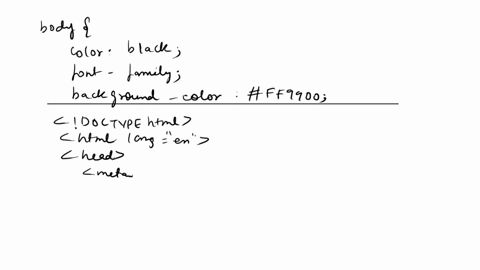 body {
color. black;
font - family;
background - color : #FF9900;
<!DOCTYPE html>
<html lang ="en">
<head>
<meta